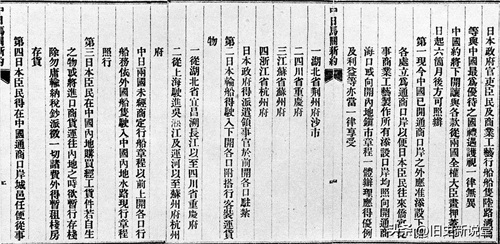 中日馬關新約
日本政府官吏臣民及商業工藝行船船隻陸路通商
等與中國最為優待之國禮遇護視一律無異
中國約將下開讓與各款從兩國全權大臣畫押蓋印
日起六個月後方可照辦
第一現今中國已開通商口岸之外應准添設下開
各處立為通商口岸以便日本臣民往來僑寓從
事商業工藝製作所有添設口岸均照向開通商
海口或向開內地鎮市章程一體辦理應得優例
及利益等亦當一律享受
一湖北省荊州府沙市
二四川省重慶府
三江蘇省蘇州府
四浙江省杭州府
日本政府得派遣領事官於前開各口駐紮
第二日本輪船得駛入下開各口附搭行客裝運貨
物
一從湖北省宜昌溯長江以至四川省重慶府
二從上海駛進吳淞江及運河以至蘇州府杭州
府
中日兩國未經商定行船章程以前上開各口行
船務依外國船隻駛入中國內地水路現行章程
照行
第三日本臣民在中國內地購買經工貨件若自生
之物或將進口商貨運往內地之時欲暫行存棧
除勿庸輸納稅鈔派徵一切諸費外得暫租棧房
存貨
第四日本臣民得在中國通商口岸城邑任便從事
中日馬關新約
头条 @旧史新说